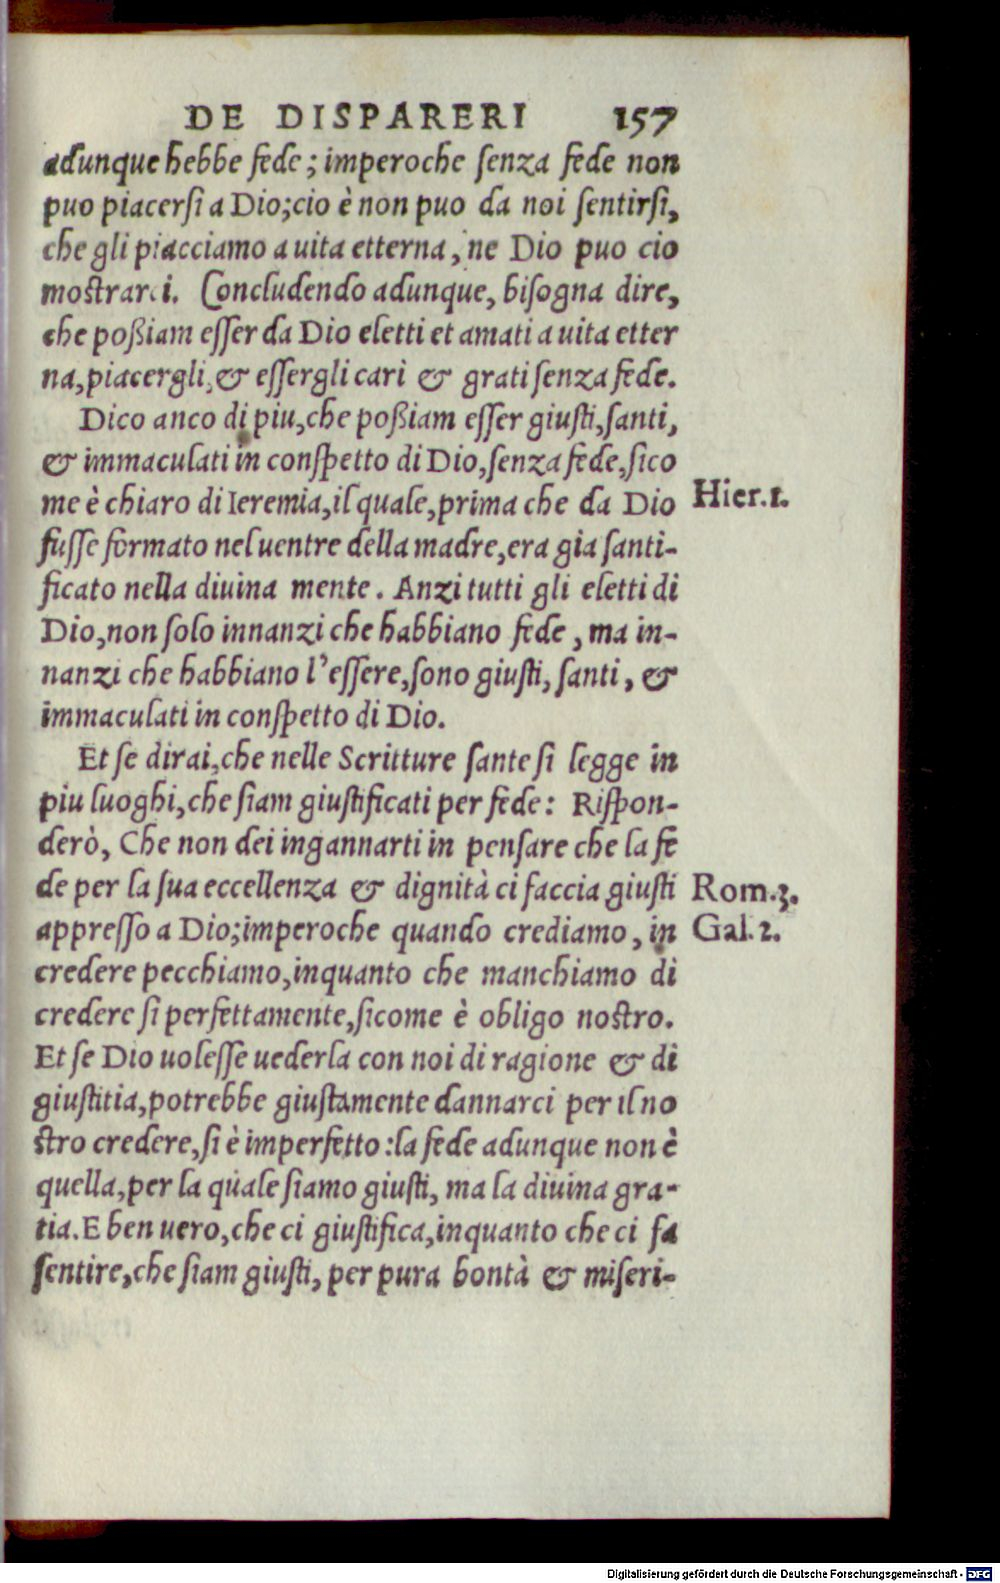 DE DISPARERI 157
adunque hebbe fede; imperoche ſenza fede non
puo piacerſi a Dio; cio è non puo da noi ſentirſi,
che gli piacciamo a uita etterna, ne Dio puo cio
moſtrarci. Concludendo adunque, biſogna dire,
che poßiam eſſer da Dio eletti et amati a uita etter
na, piacergli, & eſſergli cari & grati ſenza fede.
Dico anco di piu, che poßiam eſſer giuſti, ſanti,
& immaculati in conſpetto di Dio, ſenza fede, ſico
me è chiaro di Ieremia, il quale, prima che da Dio
fuſſe formato nel uentre della madre, era gia ſanti-
ficato nella diuina mente. Anzi tutti gli eletti di
Dio, non ſolo innanzi che habbiano fede, ma in-
nanzi che habbiano l'eſſere, ſono giuſti, ſanti, &
immaculati in conſpetto di Dio.
Et ſe dirai, che nelle Scritture ſante ſi legge in
piu luoghi, che ſiam giuſtificati per fede: Riſpon-
derò, Che non dei ingannarti in penſare che la fe
de per la ſua eccellenza & dignità ci faccia giuſti
appreſſo a Dio; imperoche quando crediamo, in
credere pecchiamo, inquanto che manchiamo di
credere ſi perfettamente, ſicome è obligo noſtro.
Et ſe Dio uoleſſe uederla con noi di ragione & di
giuſtitia, potrebbe giuſtamente dannarci per il no
ſtro credere, ſi è imperfetto: la fede adunque non è
quella, per la quale ſiamo giuſti, ma la diuina gra-
tia. E ben uero, che ci giuſtifica, inquanto che ci fa
ſentire, che ſiam giuſti, per pura bontà & miſeri-
Hier. 1.
Rom. 3.
Gal. 2.
Digitalisierung gefördert durch die Deutsche Forschungsgemeinschaft - DFG